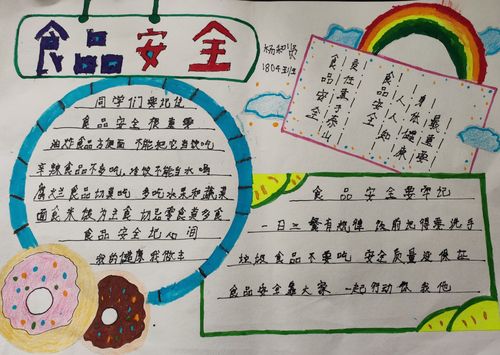 食品安全
同学们要记住
食品安全很重要
油炸食品方便面 不能把它当饭吃
辛辣食品不多吃 冷饮不能当水喝
腐烂食品切莫吃 多吃水果和蔬菜
面食米饭为主食 切忌零食莫多食
食品安全记心间
我的健康我做主
1804班
食品安全
责任重于泰山
食品安全
人人
身体健康最重要
食品安全要牢记
一日三餐有规律 饭前记得要洗手
垃圾食品不要吃 安全质量没保证
食品安全靠大家 一起行动你我他